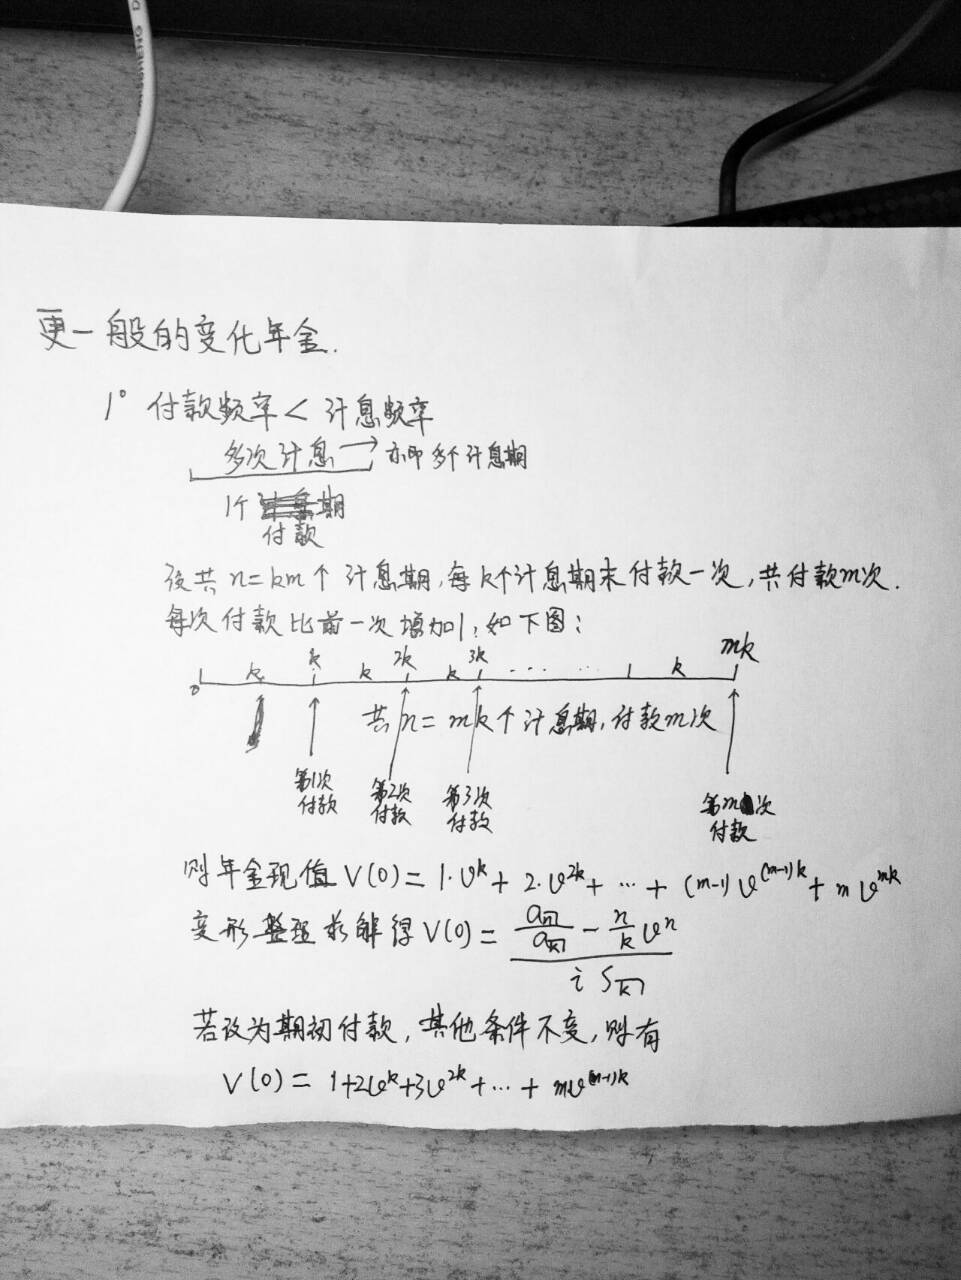 更一般的变化年金.
1° 付款频率 < 计息频率
多次计息 → 亦即多个计息期
1个 期
付款
设共 n=km 个 计息期,每k个计息期末付款一次,共付款m次.
每次付款比前一次增加1,如下图:
0 k k k 2k k 3k ...... k mk
共 n = mk个计息期,付款m次
第1次付款 第2次付款 第3次付款 第m次付款
则年金现值 V(0) = 1·v^k + 2·v^{2k} + ... + (m-1)v^{(m-1)k} + m v^{mk}
变形整理求解得 V(0) = \frac{\frac{a_{\overline{n|}}}{a_{\overline{k|}}} - \frac{n}{k} v^n}{i s_{\overline{k|}}}
若改为期初付款, 其他条件不变, 则有
V(0) = 1+2v^k+3v^{2k}+...+ mv^{(m-1)k}